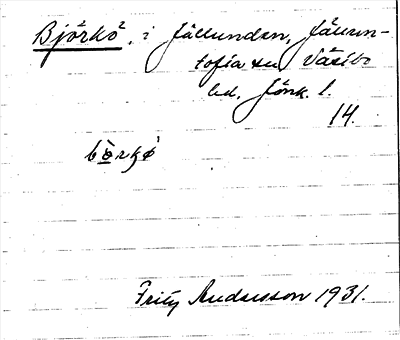 Björkö, i Fällunden, Jäurn-
tofta sn Västbo
hd, Jönk. l.
14.
börkö
Fritz Andersson 1931.